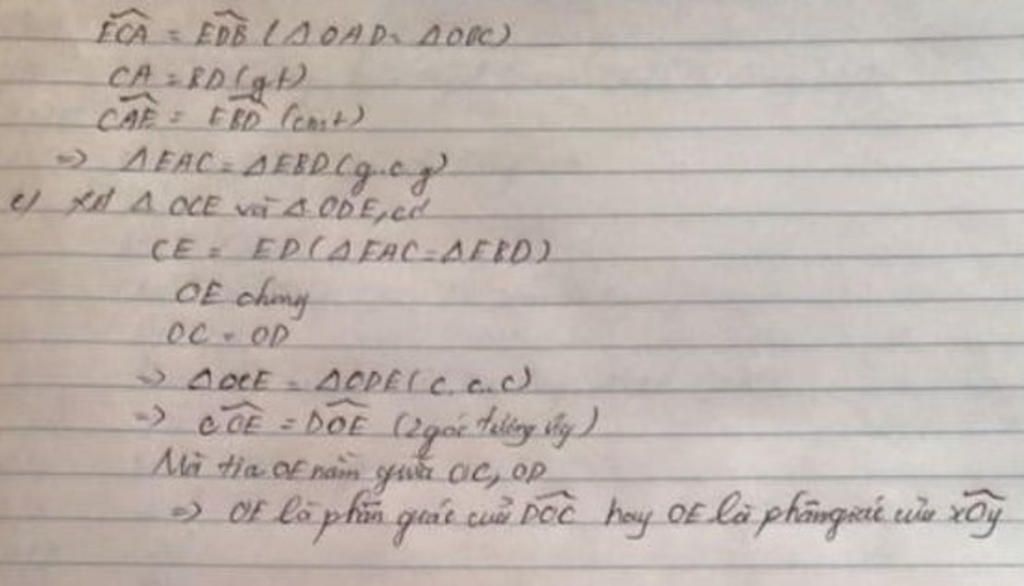 ECA = EDB (ΔOAD = ΔOBC)
CA = BD (gt)
CAE = EBD (cmt)
=> ΔEAC = ΔEBD (g.c.g)
c) Xét Δ OCE và Δ ODE, có
CE = ED (ΔEAC = ΔEBD)
OE chung
OC = OD
=> ΔOCE = ΔODE (c.c.c)
=> COE = DOE (2 góc tương ứng)
Mà tia OE nằm giữa OC, OD
=> OE là phân giác của DOC hay OE là phân giác của xOy